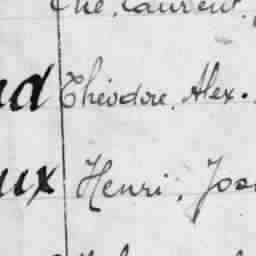 the, Laurent,
nd Théodore, Alex.
ux Henri, Joa